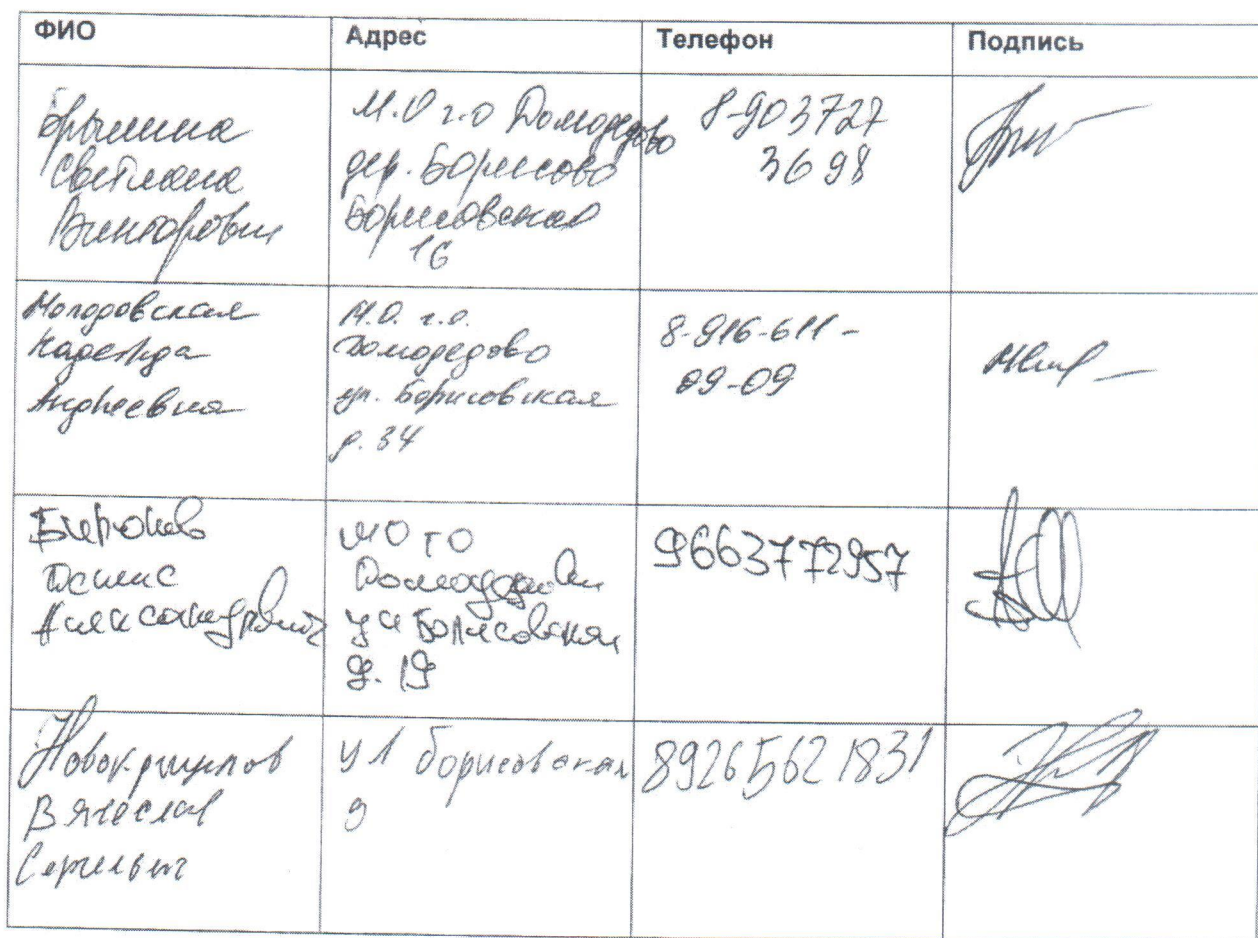 ФИО Адрес Телефон Подпись
Брынина
Светлана
Викторовн
М.О г.о Домодедово
дер. Борисово
Борисовская
16
8-903727
3698
Молодовская
Надежда
Андреевна
М.О. г.о.
Домодедово
ул. Борисовская
д. 34
8-916-611-
09-09
Бирюков
Денис
Александрович
МО ГО
ул Борисовская
д. 19
9663772957
Вячеслав
Сергеевич
ул Борисовская
9
89265621831